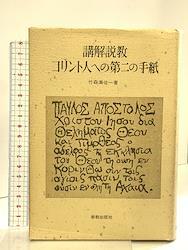 講解説教
コリント人への第二の手紙
竹森満佐一著
ΠΑΥΛΟΣ ΑΠΟΣΤΟΛΟΣ
Χριστου Ιησου δια
Θεληματος Θεου
και Τιμοθεος ο
αδελφος τη εκκλησια
του Θεου τη ουση εν
Κορινθω συν τοις
αγιοις πασιν τοις
ουσιν εν ολη τη Αχαια.
新教出版社